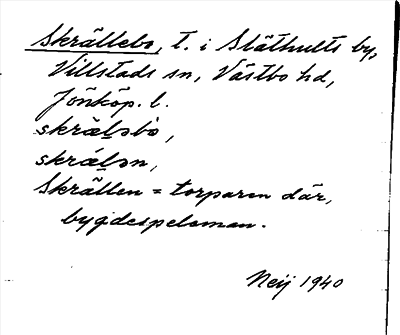 Skrällebo, t. i Stäthults by,
Villstads sn, Västbo hd,
Jönköp. l.
skrälǝbò,
skrälǝn,
Skrällen = torparen där,
bygdespeleman.
Neij 1940